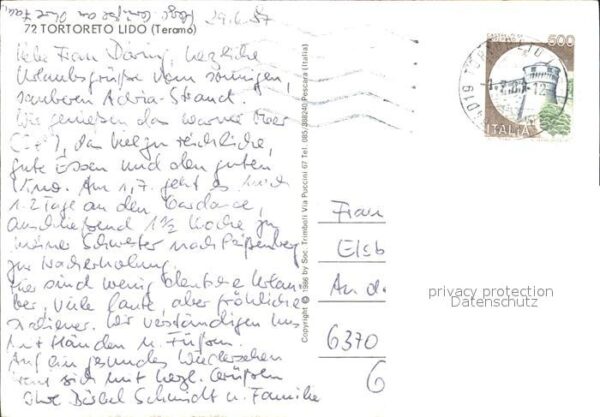 29.6.87
72 TORTORETO LIDO (Teramo)
Liebe Frau Döring, herzliche
Urlaubsgrüße vom sonnigen,
sauberen Adria-Strand.
Wir genießen das warme Meer
das reichliche,
gute Essen und den guten
Vino. Am 1.7. geht es noch
1-2 Tage an den Gardasee,
anschließend 1½ Woche zu
meiner Schwester nach Peißenberg
zur Nacherholung.
Hier sind wenig deutsche Urlau-
ber, viele laute, aber fröhliche
Italiener. Wir verständigen uns
mit Händen u. Füßen.
Auf ein gesundes Wiedersehen
freut sich mit herzl. Grüßen
Ihre Bärbel Schmidt u. Familie
Copyright © 1986 by Soc. Trimboli Via Puccini 67 Tel. 085/388240 Pescara (Italia)
600
ITALIA
Frau
Elsb
An d
6370
6
privacy protection
Datenschutz